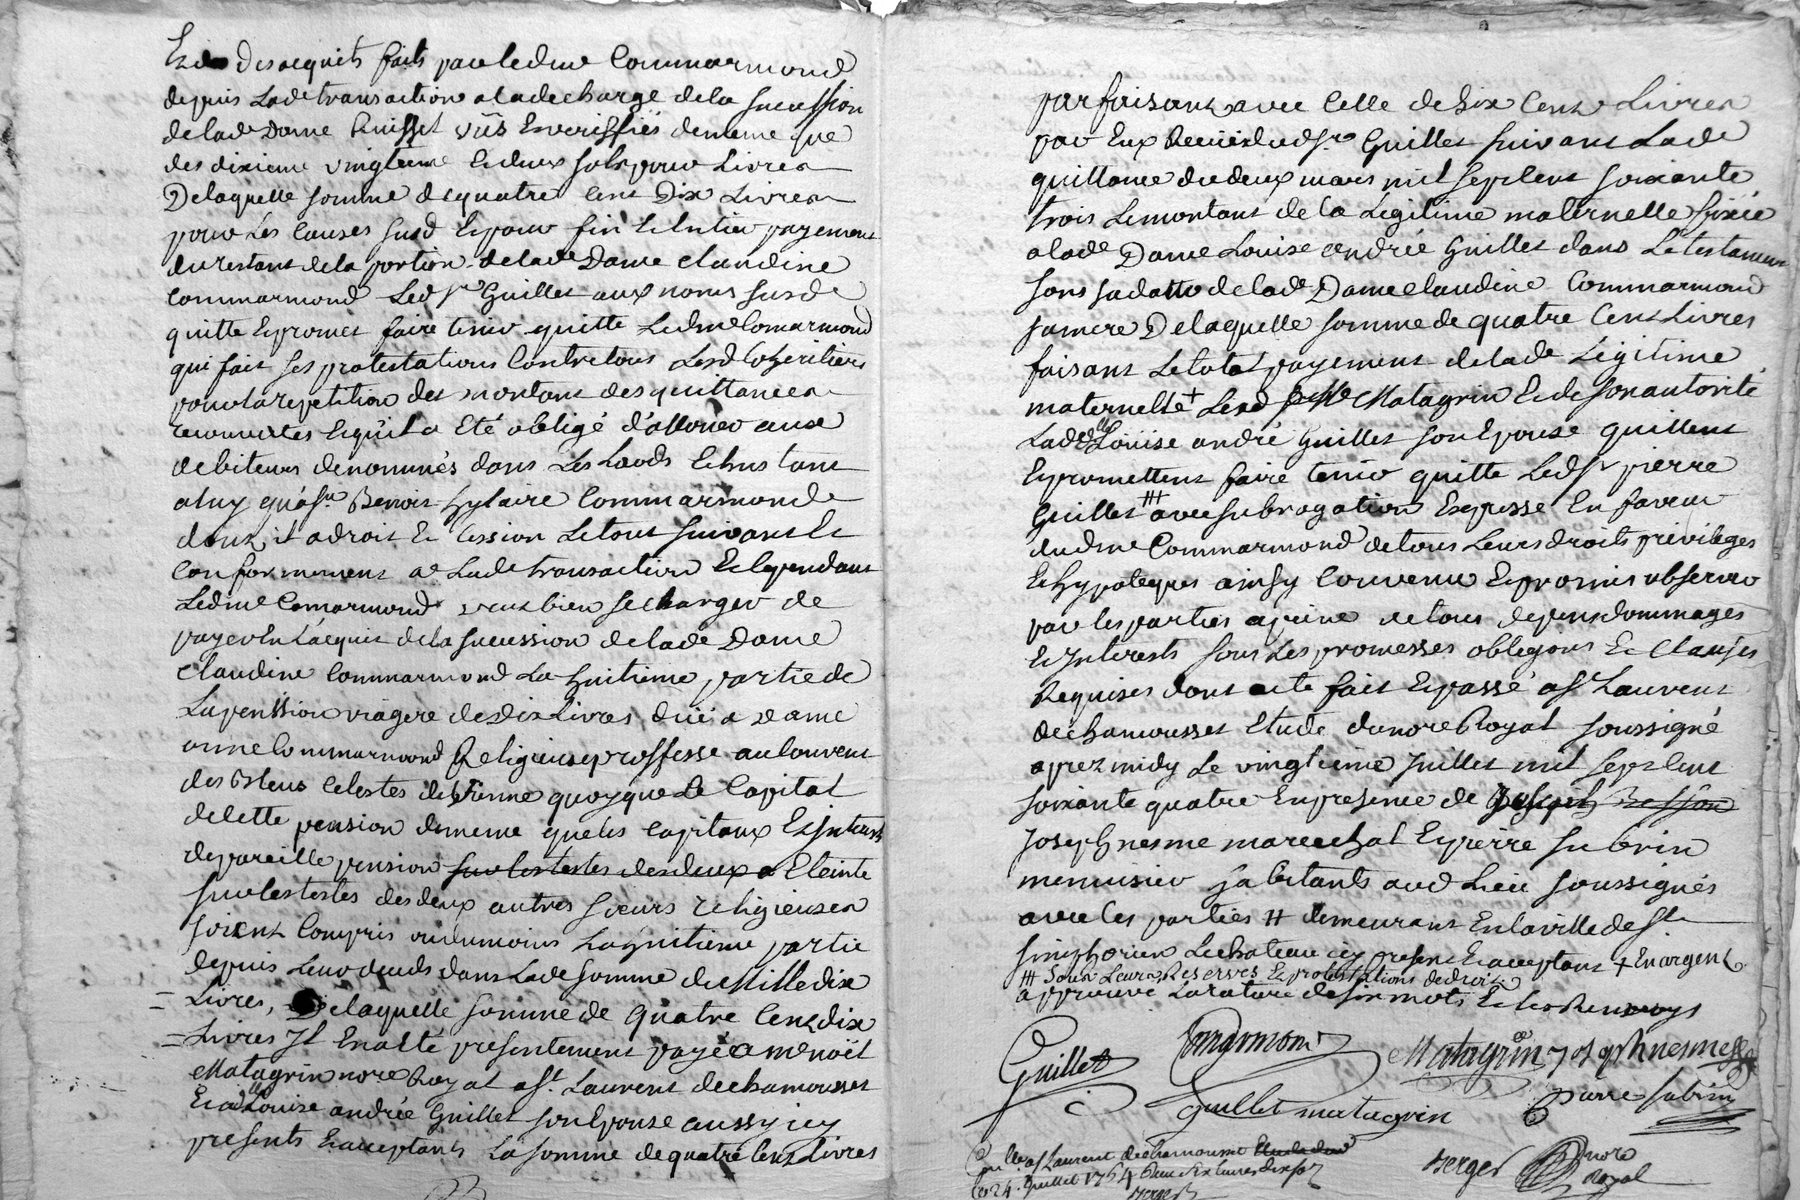 des acquits faits par led me Commarmond
depuis lade transaction a la decharge de la sucession
de lade Dame Ruisset vûs et veriffiés de meme que
des dixieme vingtieme et deux sols pour Livre
De laquelle somme de quatre cent Dix Livres
pour les causes susd et pour fin et entier payement
du restant de la portion de lade Dame claudine
Commarmond Led sr Guillet aux noms susd
quitte et promet faire tenir quitte Led me Comarmond
qui fait ses protestations contre tous Lesd Coheritiers
pour la repetition des montans des quittances
raportées et qu'il a Eté obligé d'allouer aux
debiteurs denommés dans Les Laods Echus tant
a luy qu'a sr Benoit hylaire Commarmond
dont il a droit et Cession Le tout suivant et
Conformement a Lade transaction Et cependant
Led me Comarmond veut bien se charger de
payer En l'acquit de la sucession de lade Dame
Claudine Commarmond La huitieme partie de
La penssion viagere de dix Livres düe a Dame
anne Commarmond Religieuse proffesse au Couvent
des Bleus Celestes de vienne quoyque Le Capital
de cette pension de meme que les Capitaux Et Interets
de pareille pension sur les testes des deux a Eteinte
sur les testes des deux autres soeurs religieuses
soient Compris au du moins La huitieme partie
depuis leur deceds dans Lade somme de Mille dix
Livres, De laquelle somme de Quatre Cent dix
Livres Il En a Eté presentement payé a me noël
Matagrin nore Royal a st. Laurent de chamousset
Et a delle Louise andrée Guillet son Epouse aussy icy
presents Et acceptants La somme de quatre Cent Livres
parfaisant avec Celle de six Cent Livres
par Eux Recüe dud sr Guillet suivant Lade
quittance du deux mars mil sept Cent soixante
trois Le montant de la Legitime maternelle fixée
a lade Dame Louise andrée Guillet dans Le testament
sous sa datte de lade Dame Claudine Commarmond
sa mere De laquelle somme de quatre Cent Livres
faisant Le total payement de lade Légitime
maternelle + Lesd sr Matagrin Et de son autorité
Lade delle Loüise andré Guillet son Epouse quittent
Et promettent faire tenir quitte Led sr pierre
Guillet avec subrogation Expresse En faveur
dud me Commarmond de tous Leurs droits privileges
Et hypoteques ainsy Convenu Et promis observer
par les parties a peine de tous depens dommages
Et Interests sous Les promesses obligeons Et Clauses
Requises dont acte fait Et passé a st Laurent
de chamousset Etude du nore Royal soussigné
aprez midy Le vingtieme Juillet mil sept Cent
soixante quatre En presence de Joseph Besson
Joseph nesme marechal Et pierre subrin
menuisier habitants aud Lieu soussignés
avec les parties # demeurant En la ville de st
sinphorien Lechateau icy present Et acceptant + En argent
# sous Leurs Reserves Et protestations de droit
approuvé La rature de six mots Et les Renvoys
Guillet Comarmond Matagrin joseph nesme
guillet matagrin pierre subrin
Con lle a st Laurent de chamousset
Le 24. Juillet 1764 Berger nore
Berger Royal